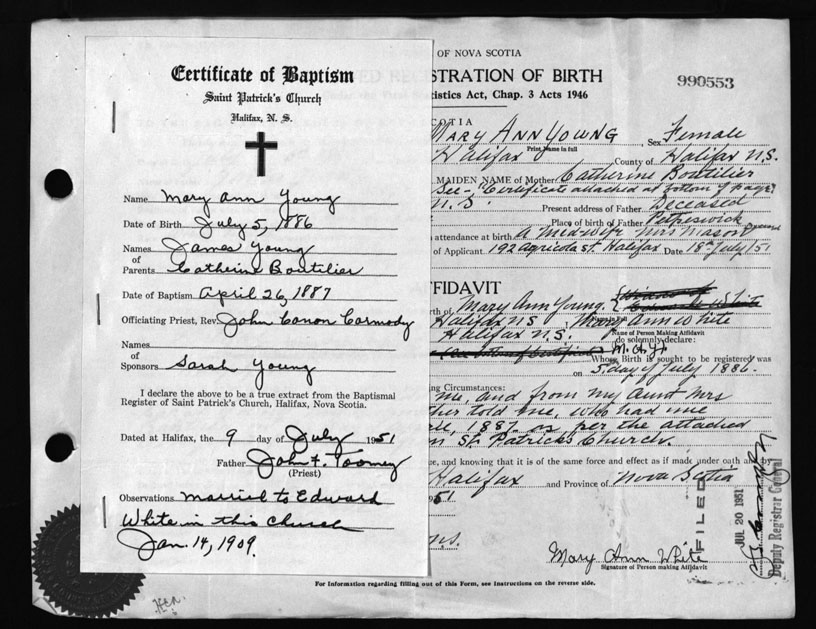 Certificate of Baptism
Saint Patrick's Church
Halifax, N. S.
Name Mary Ann Young
Date of Birth July 5, 1886
Names James Young
of
Parents Catherine Boutilier
Date of Baptism April 26, 1887
Officiating Priest, Rev. John Canon Carmody
Names
of
Sponsors Sarah Young
I declare the above to be a true extract from the Baptismal
Register of Saint Patrick's Church, Halifax, Nova Scotia.
Dated at Halifax, the 9 day of July 1951
Father John F. Toomey
(Priest)
Observations Married to Edward
White in this Church
Jan. 14, 1909.
OF NOVA SCOTIA
STRATION OF BIRTH
istics Act, Chap. 3 Acts 1946
990553
COTIA
MARY ANN YOUNG Sex Female
Print Name in full
Halifax County of Halifax N.S.
MAIDEN NAME of Mother Catherine Boutilier
See - Certificate attached at bottom of page
N.S. Present address of Father Deceased
Place of birth of Father Petpeswick
attendance at birth A Mid-wife Mrs Mason
of Applicant 192 Agricola St. Halifax Date 18th July/51
FFIDAVIT
th of Mary Ann Young,
Halifax N.S. Mary Ann White
Name of Person Making Affidavit
Halifax N.S. do solemnly declare:
M.A.Y.
Whose Birth is sought to be registered was
on 5 day of July 1886.
ng Circumstances:
me, and from my Aunt Mrs
ther told me, who had me
1887 as per the attached
St. Patricks Church.
e, and knowing that it is of the same force and effect as if made under oath and by
Halifax and Province of Nova Scotia
51
Mary Ann White
Signature of Person making Affidavit
FILED
JUL 20 1951
Deputy Registrar General
For Information regarding filling out of this Form, see Instructions on the reverse side.